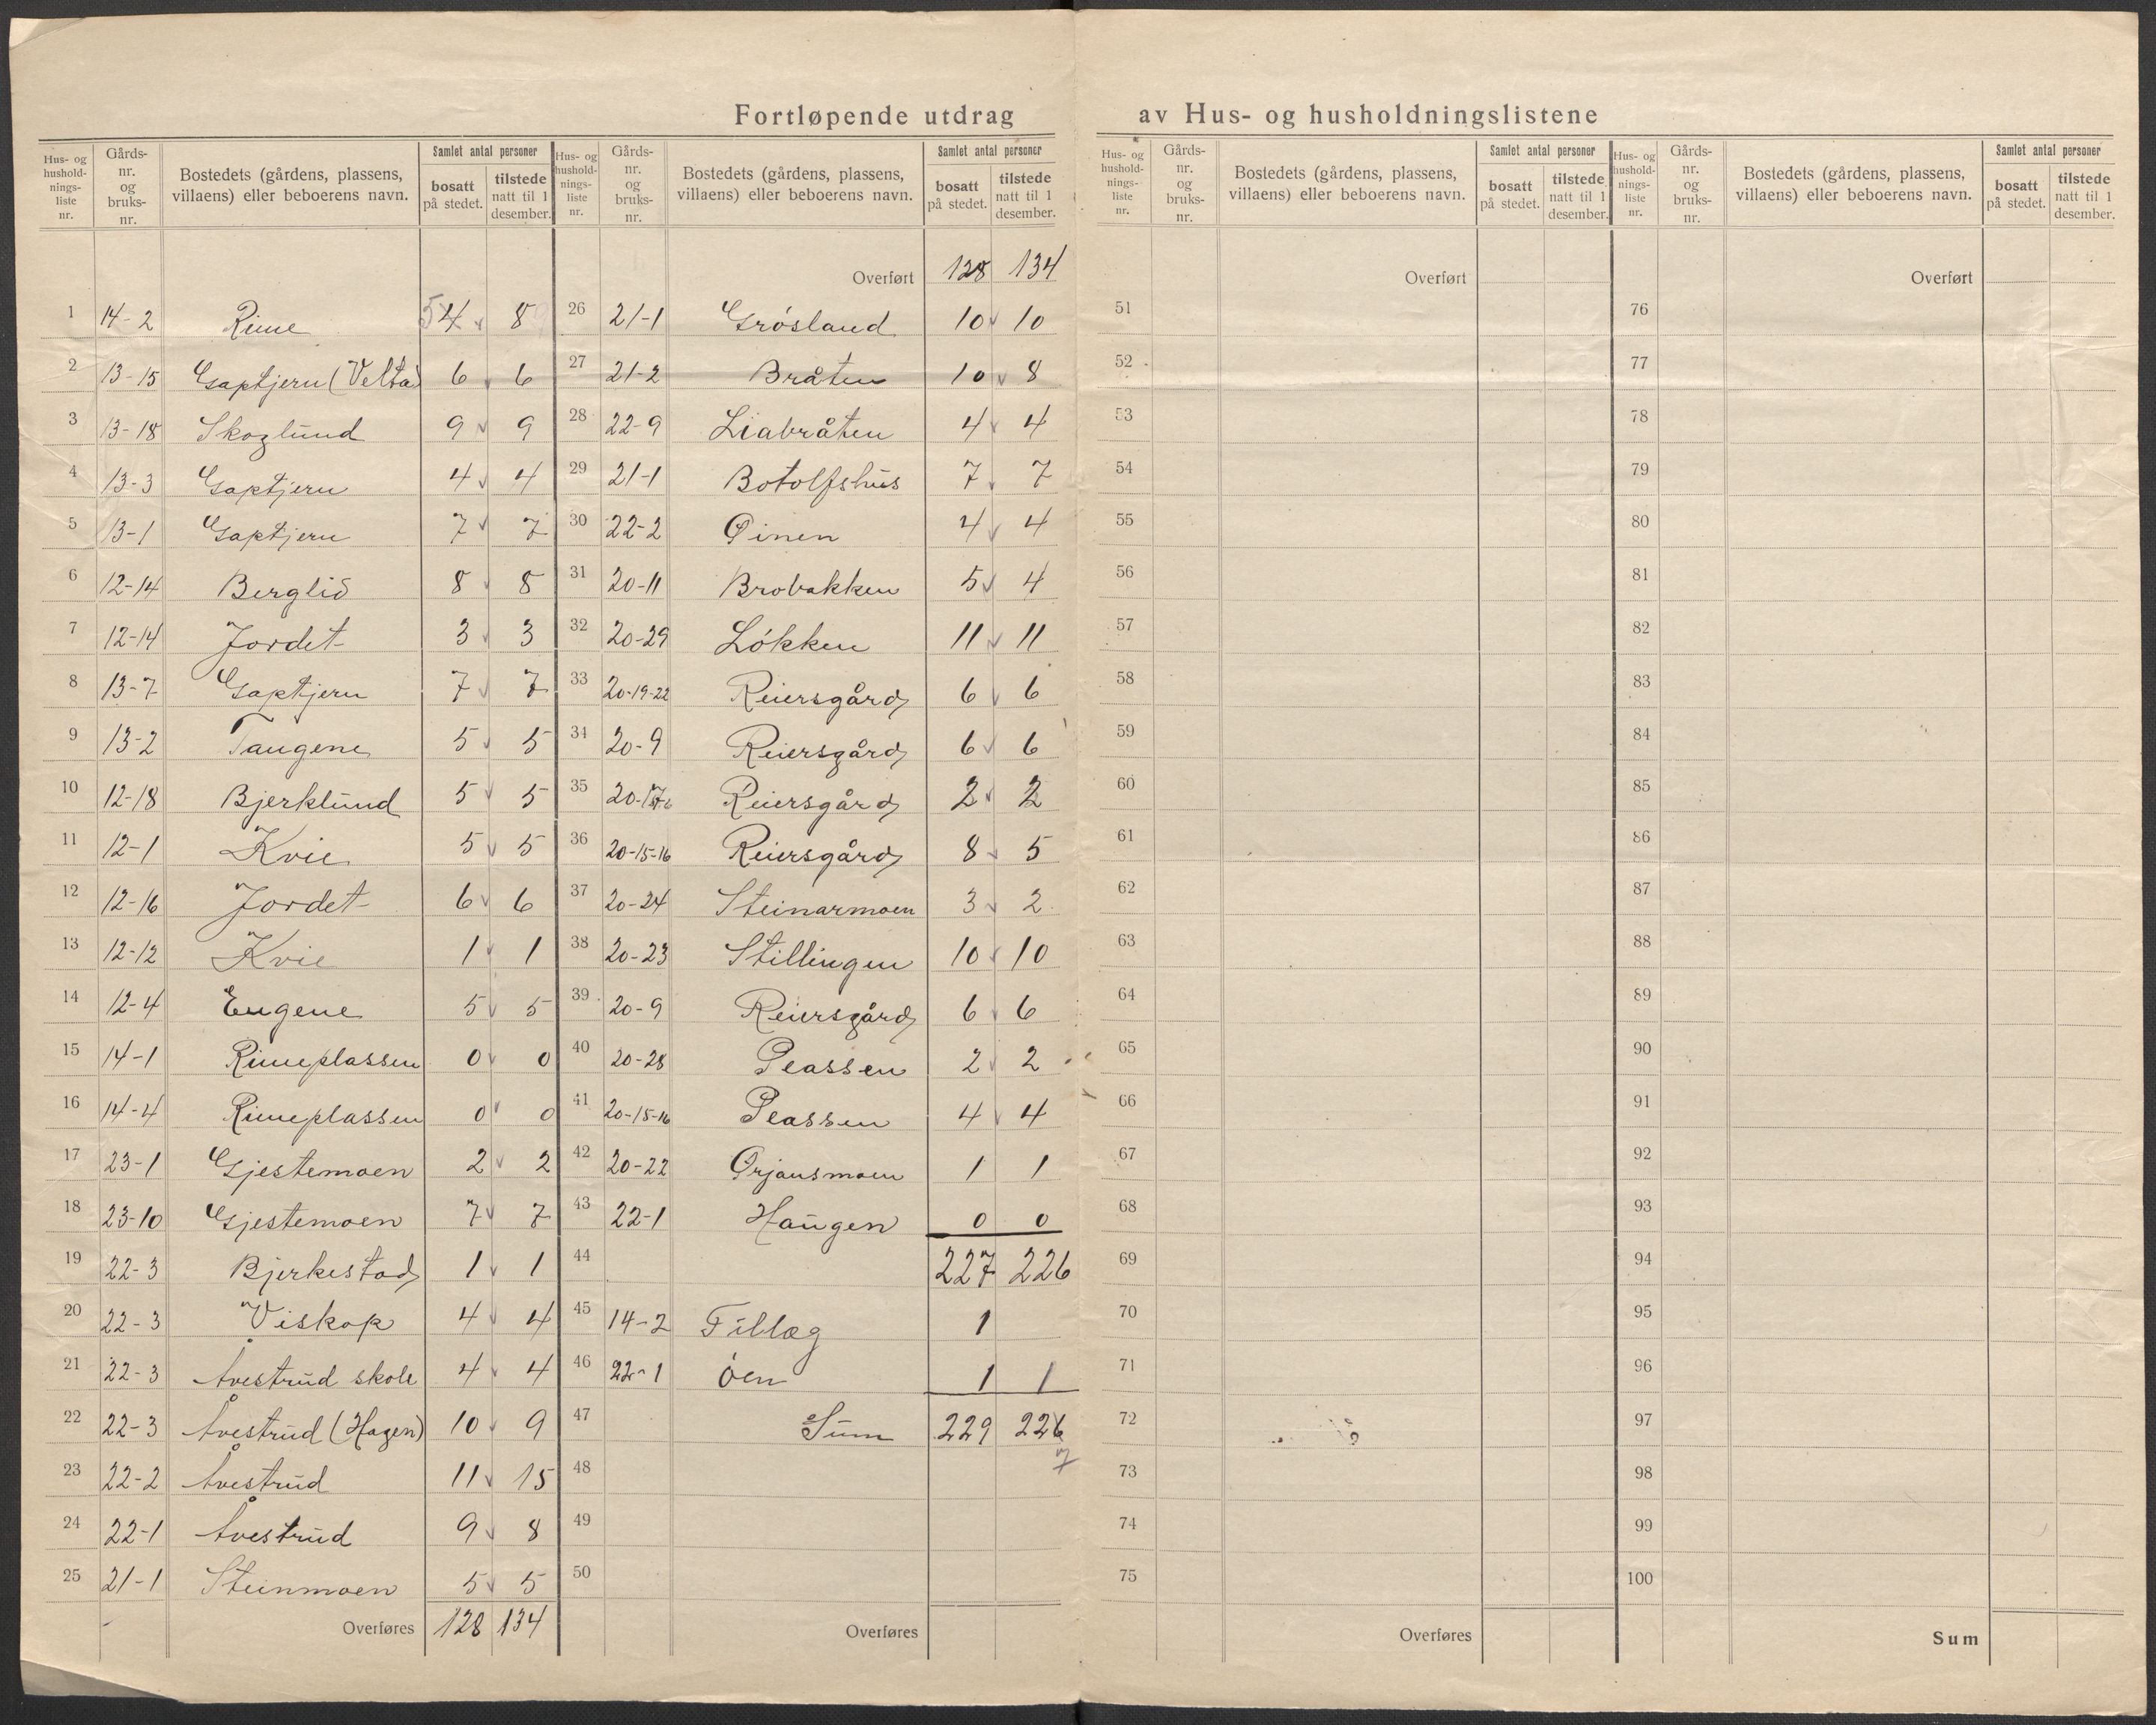 Fortløpende utdrag av Hus- og husholdningslistene
Hus- og husholdningsliste nr. | Gårdsnr. og bruksnr. | Bostedets (gårdens, plassens, villaens) eller beboerens navn. | Samlet antal personer bosatt på stedet. | tilstede natt til 1 desember.
1 14-2 Rime 54 8
2 13-15 Gaptjern (Velta) 6 6
3 13-18 Skoglund 9 9
4 13-3 Gaptjern 4 4
5 13-1 Gaptjern 7 7
6 12-14 Berglid 8 8
7 12-14 Jordet 3 3
8 13-7 Gaptjern 7 7
9 13-2 Tangene 5 5
10 12-18 Bjerklund 5 5
11 12-1 Kvie 5 5
12 12-16 Jordet 6 6
13 12-12 Kvie 1 1
14 12-4 Engene 5 5
15 14-1 Rimeplassen 0 0
16 14-4 Rimeplassen 0 0
17 23-1 Gjestemoen 2 2
18 23-10 Gjestemoen 7 7
19 22-3 Bjerkestad 1 1
20 22-3 Viskop 4 4
21 22-3 Åvestrud skole 4 4
22 22-3 Åvestrud (Hagen) 10 9
23 22-2 Åvestrud 11 15
24 22-1 Åvestrud 9 8
25 21-1 Steinmoen 5 5
Overføres 128 134
Hus- og husholdningsliste nr. | Gårdsnr. og bruksnr. | Bostedets (gårdens, plassens, villaens) eller beboerens navn. | Samlet antal personer bosatt på stedet. | tilstede natt til 1 desember.
Overført 128 134
26 21-1 Grósland 10 10
27 21-2 Bråten 10 8
28 22-9 Liabråten 4 4
29 21-1 Botolfshus 7 7
30 22-2 Øinen 4 4
31 20-11 Brobakken 5 4
32 20-29 Lókken 11 11
33 20-19-22 Reiersgård 6 6
34 20-9 Reiersgård 6 6
35 Reiersgård 2 2
36 20-15-16 Reiersgård 8 5
37 20-24 Steinarmoen 3 2
38 20-23 Stillingen 10 10
39 20-9 Reiersgård 6 6
40 20-28 Plassen 2 2
41 20-15-16 Plassen 4 4
42 20-22 Ørjansmoen 1 1
43 22-1 Haugen 0 0
44 227 226
45 14-2 Tillæg 1
46 22-1 óen 1 1
47 Sum 229 226
7
48
49
50
Overføres
Hus- og husholdningsliste nr. | Gårdsnr. og bruksnr. | Bostedets (gårdens, plassens, villaens) eller beboerens navn. | Samlet antal personer bosatt på stedet. | tilstede natt til 1 desember.
Overført
51
52
53
54
55
56
57
58
59
60
61
62
63
64
65
66
67
68
69
70
71
72
73
74
75
Overføres
Hus- og husholdningsliste nr. | Gårdsnr. og bruksnr. | Bostedets (gårdens, plassens, villaens) eller beboerens navn. | Samlet antal personer bosatt på stedet. | tilstede natt til 1 desember.
Overført
76
77
78
79
80
81
82
83
84
85
86
87
88
89
90
91
92
93
94
95
96
97
98
99
100
Sum